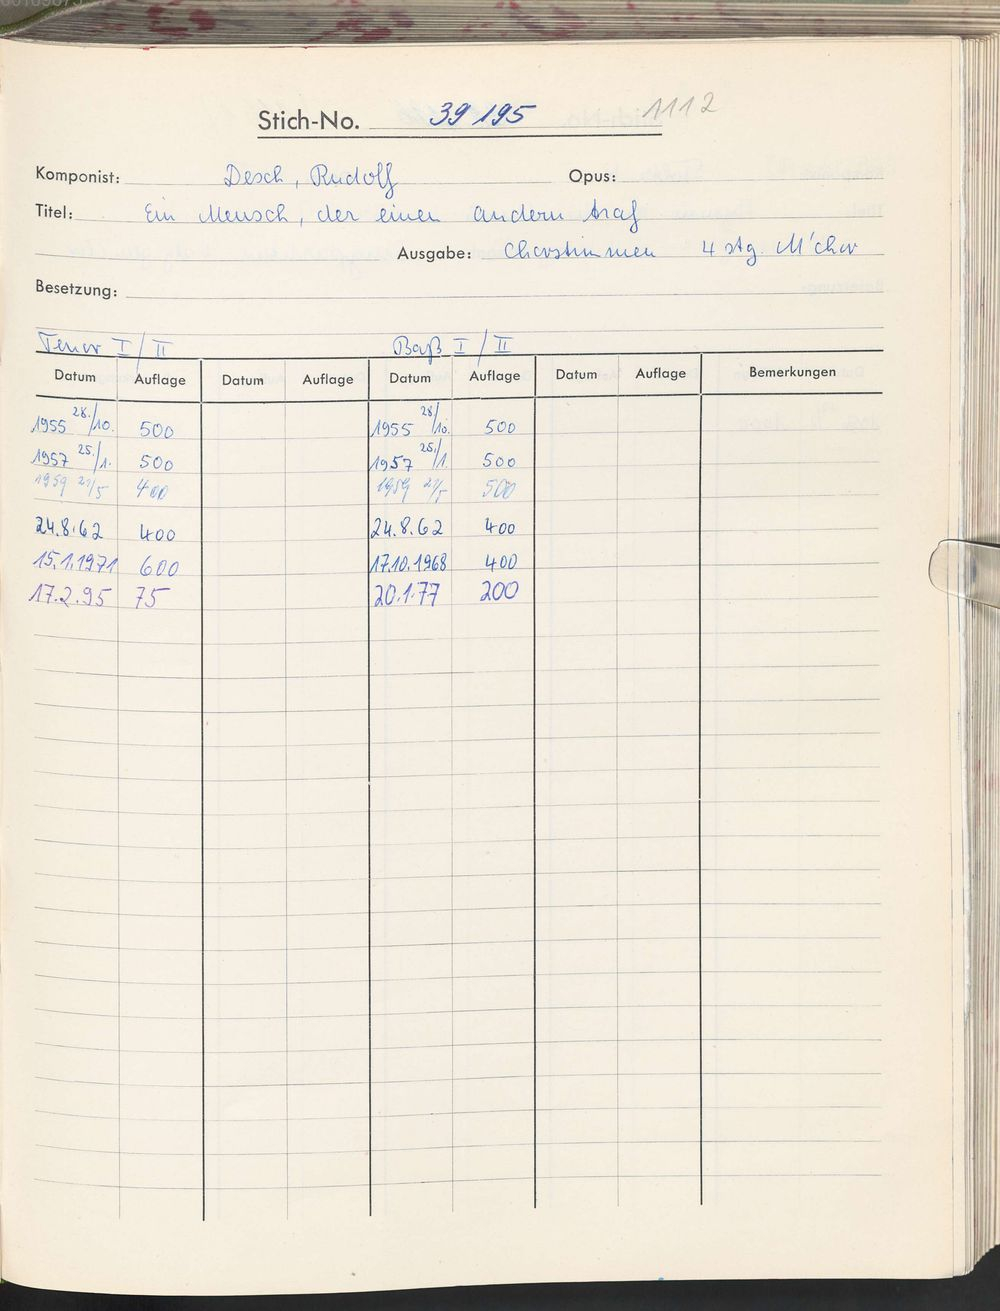 Stich-No. 39 195 1112
Komponist: Desch, Rudolf Opus:
Titel: Ein Mensch, der einen andern traf
Ausgabe: Chorstimmen 4 stg. M'chor
Besetzung:
Tenor I / II Baß I / II
Datum Auflage Datum Auflage Datum Auflage Datum Auflage Bemerkungen
1955 28./10. 500 1955 28/10. 500
1957 25./1. 500 1957 25./1. 500
1959 27/5 400 1959 27/5 500
24.8.62 400 24.8.62 400
15.1.1971 600 17.10.1968 400
17.2.95 75 20.1.77 200